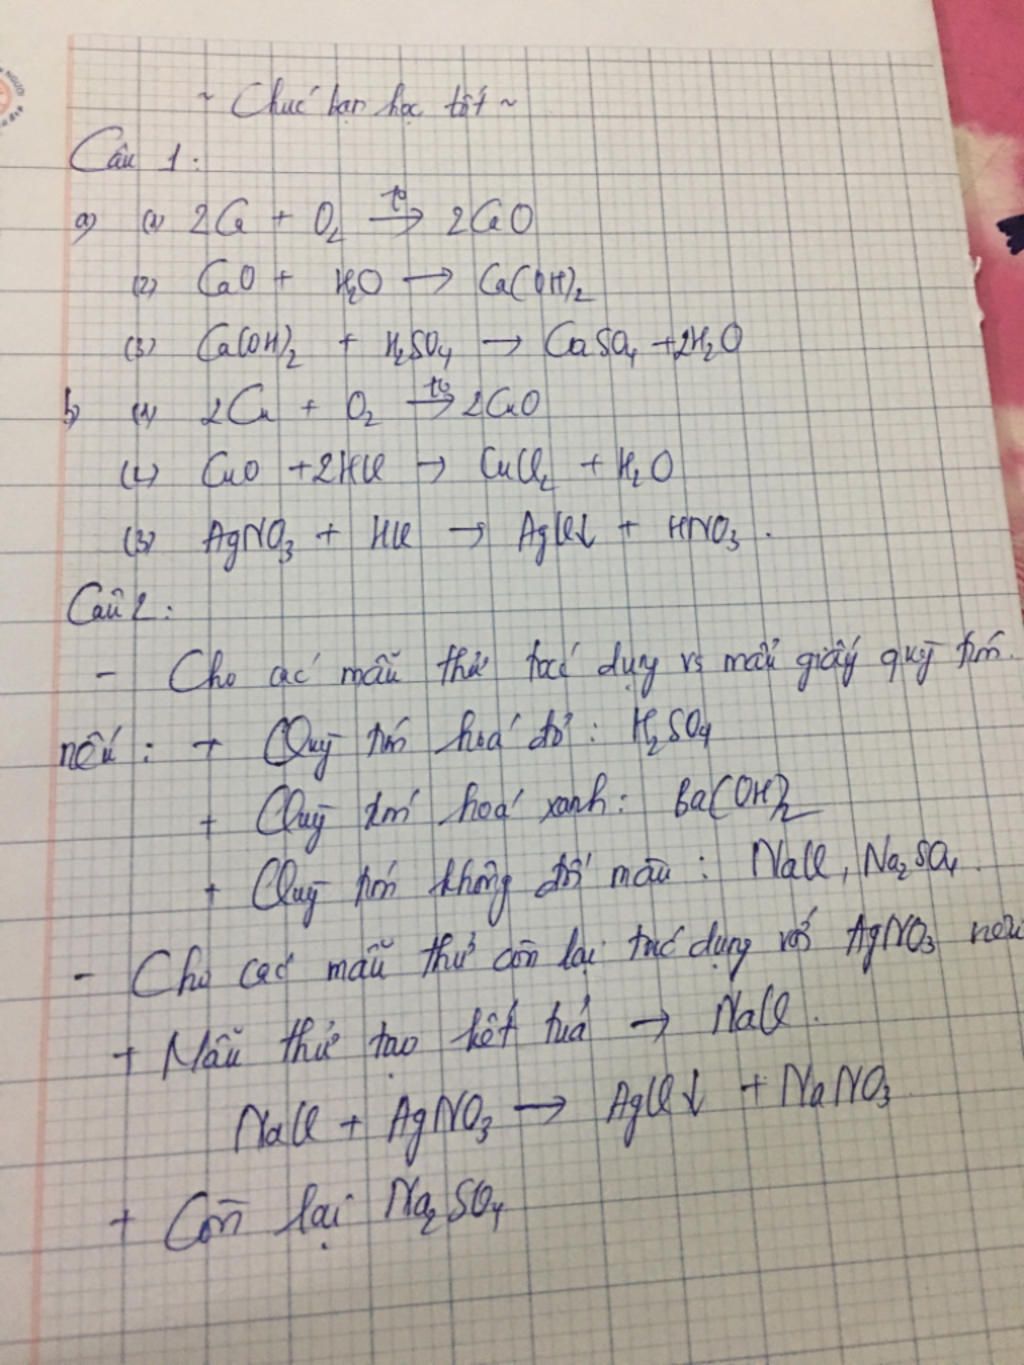 ~ Chúc bạn học tốt ~
Câu 1:
a) (1) 2Ca + O₂ –t°→ 2CaO
(2) CaO + H₂O → Ca(OH)₂
(3) Ca(OH)₂ + H₂SO₄ → CaSO₄ + 2H₂O
b) (1) 2Cu + O₂ –t°→ 2CuO
(2) CuO + 2HCl → CuCl₂ + H₂O
(3) AgNO₃ + HCl → AgCl↓ + HNO₃.
Câu 2:
- Cho các mẫu thử tác dụng vs mẩu giấy quỳ tím.
nếu: + Quỳ tím hoá đỏ: H₂SO₄
+ Quỳ tím hoá xanh: Ba(OH)₂
+ Quỳ tím không đổi màu: NaCl, Na₂SO₄.
- Cho các mẫu thử còn lại tác dụng với AgNO₃ nếu
+ Mẫu thử tạo kết tuả → NaCl.
NaCl + AgNO₃ → AgCl↓ + NaNO₃
+ Còn lại Na₂SO₄